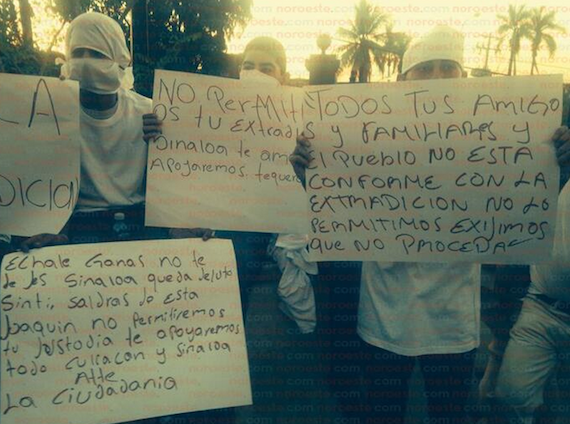 LA
DICIA
NO PERMITI
OS tu Extradi
Sinaloa te am
Apoyaremos. tequer
TODOS TUS AMIGO
S y FAMILIARES y
El PuEblO NO ESTA
CONFORME CON LA
EXTRADICION NO LO
PERMITIMOS EXIJIMOS
QUE NO PROCEDA
Echale Ganas no te
de jes Sinaloa queda deluto
Sinti, saldras do Esta
Joaquin no permitiremos
tu te apoyaremos
todo CuliacaN y Sinaloa
Atte
La Ciudadania
noroeste.com